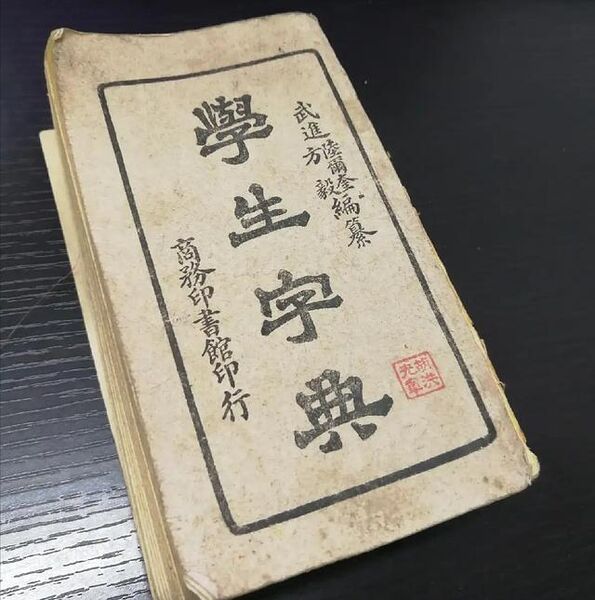 武進陸爾奎方毅編纂
學生字典
商務印書館印行